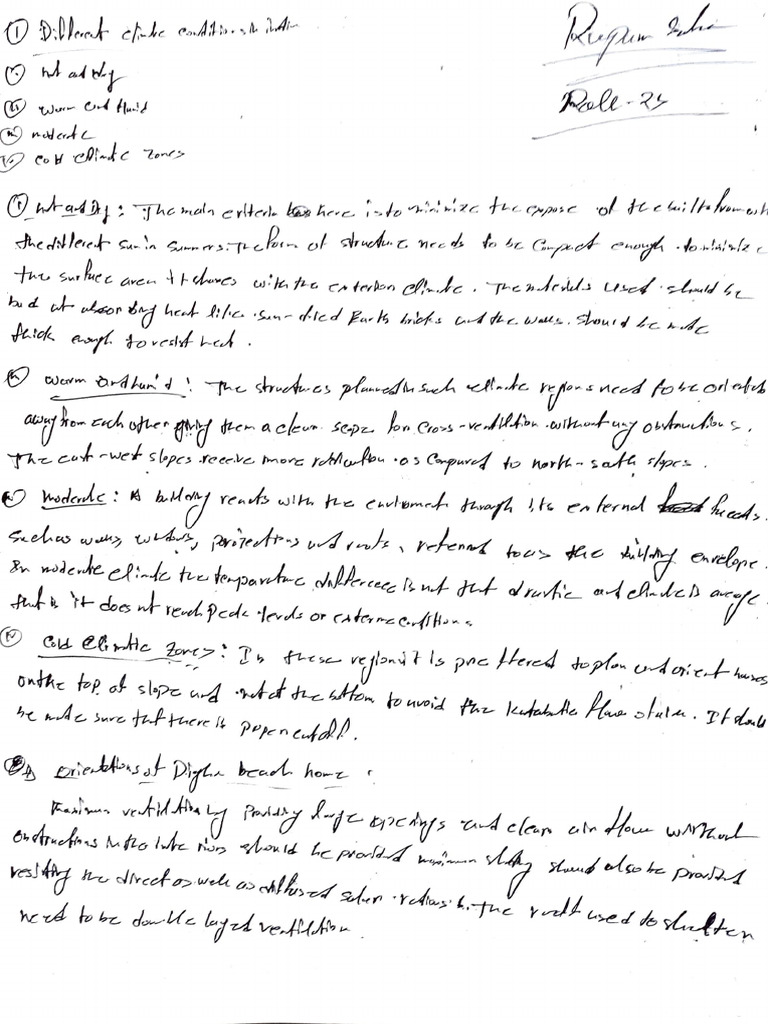 ① Different climate conditions in
Roll - 24
hot and dry
warm and Humid
moderate
cold climatic zones
① hot and dry : The main criteria here is to minimize the expose of the built from
the different sun in summers. The form of structure needs to be compact enough to minimize
the surface area it shares with the exterior climate. The materials used should be
bad at absorbing heat like sun-dried Earth bricks and the walls should be made
thick enough to resist heat.
warm and humid : The structures planned in such climatic regions need to be oriented
away from each other giving them a clear scope for cross-ventilation without any obstructions.
The east-west slopes receive more as compared to north-south slopes.
moderate : A building reacts with the enviroment through its external
such as walls, windows, projections and roofs, referred to as the building envelope.
In moderate climate the temperature difference is not that drastic and climate is average
that is it does not reach peak levels or extreme conditions
IV cold climatic zones : In these region it is preffered to plan and orient houses
on the top of slope and not at the bottom to avoid the katabatic flow of air. It should
be made sure that there is proper cutoff.
orientations of Digha beach home :
maximum ventilation by providing large openings and clean air flow without
onstructions in the should be provided maximum shading should also be provided
resisting the direct as well as diffused solar radiations. The roof used to shelter
need to be double layed ventilation.